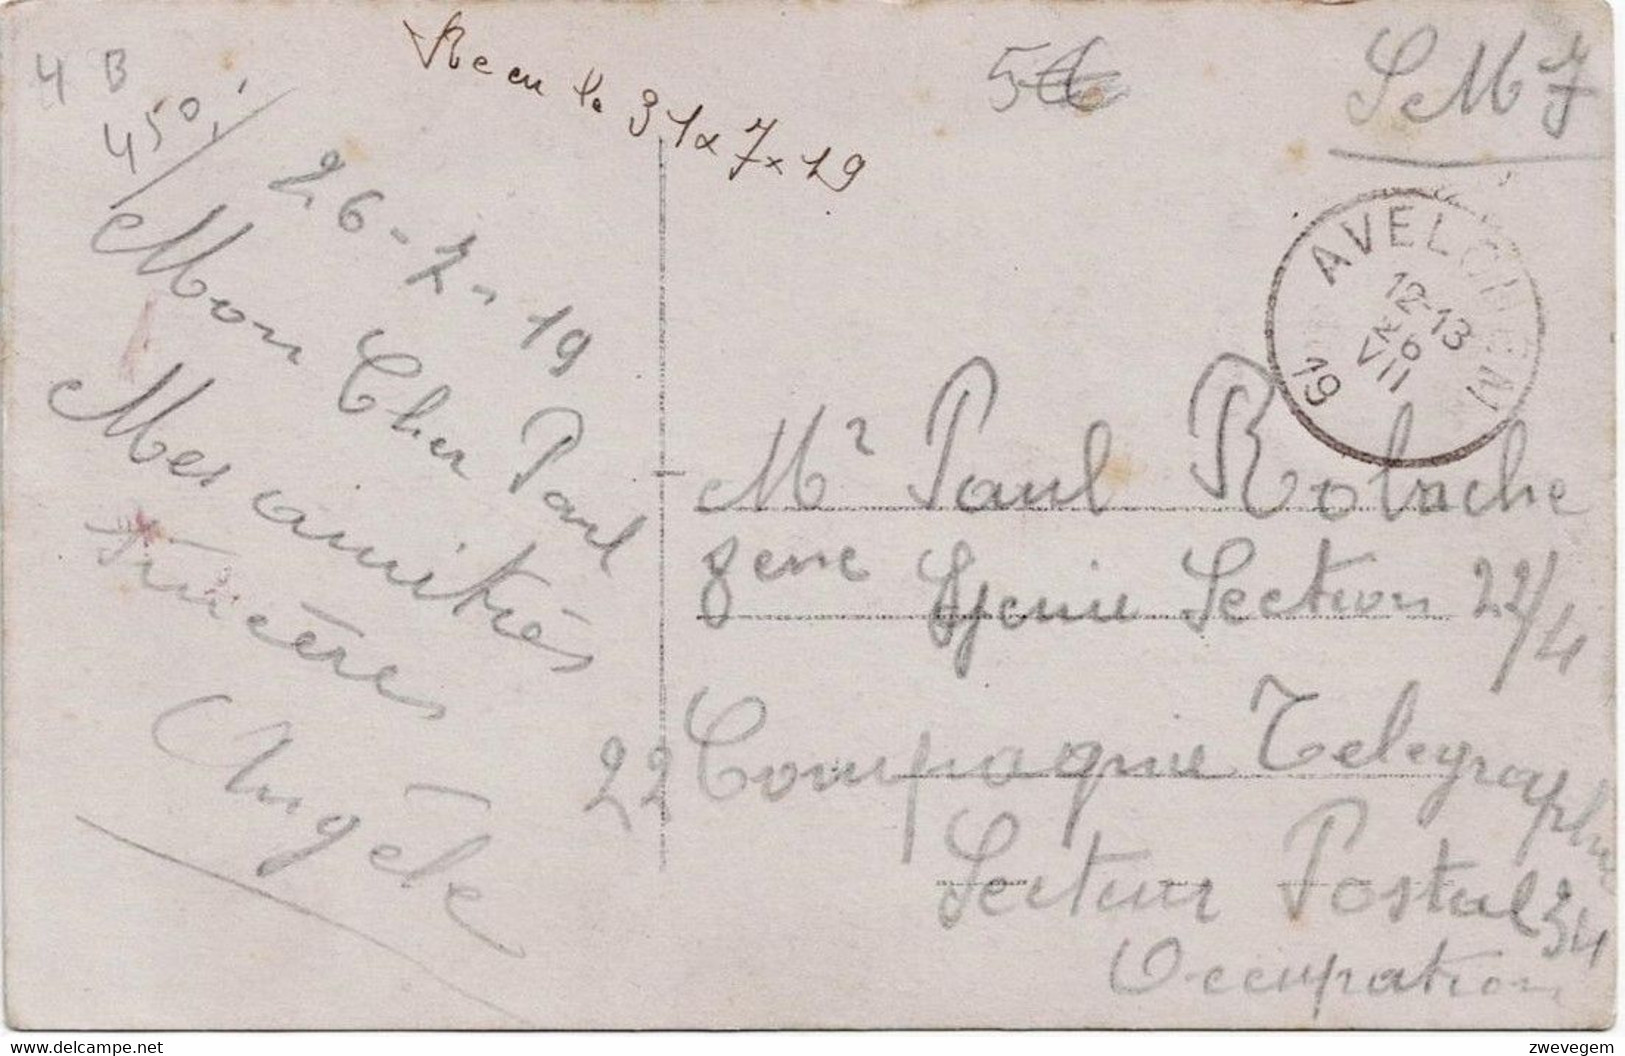 4 B
450,
Recu le 31 x 7 x 19
5
S M 7
26-7-19
Mon Cher Paul
Mes amitiés
sincères
Angèle
AVELGHEM
12-13
26
VII
19
Mr Paul Rolache
8eme Genie Section 22/4
22 Compagnie Telegraphie
Secteur Postal 34
Occupation
www.delcampe.net
zwevegem